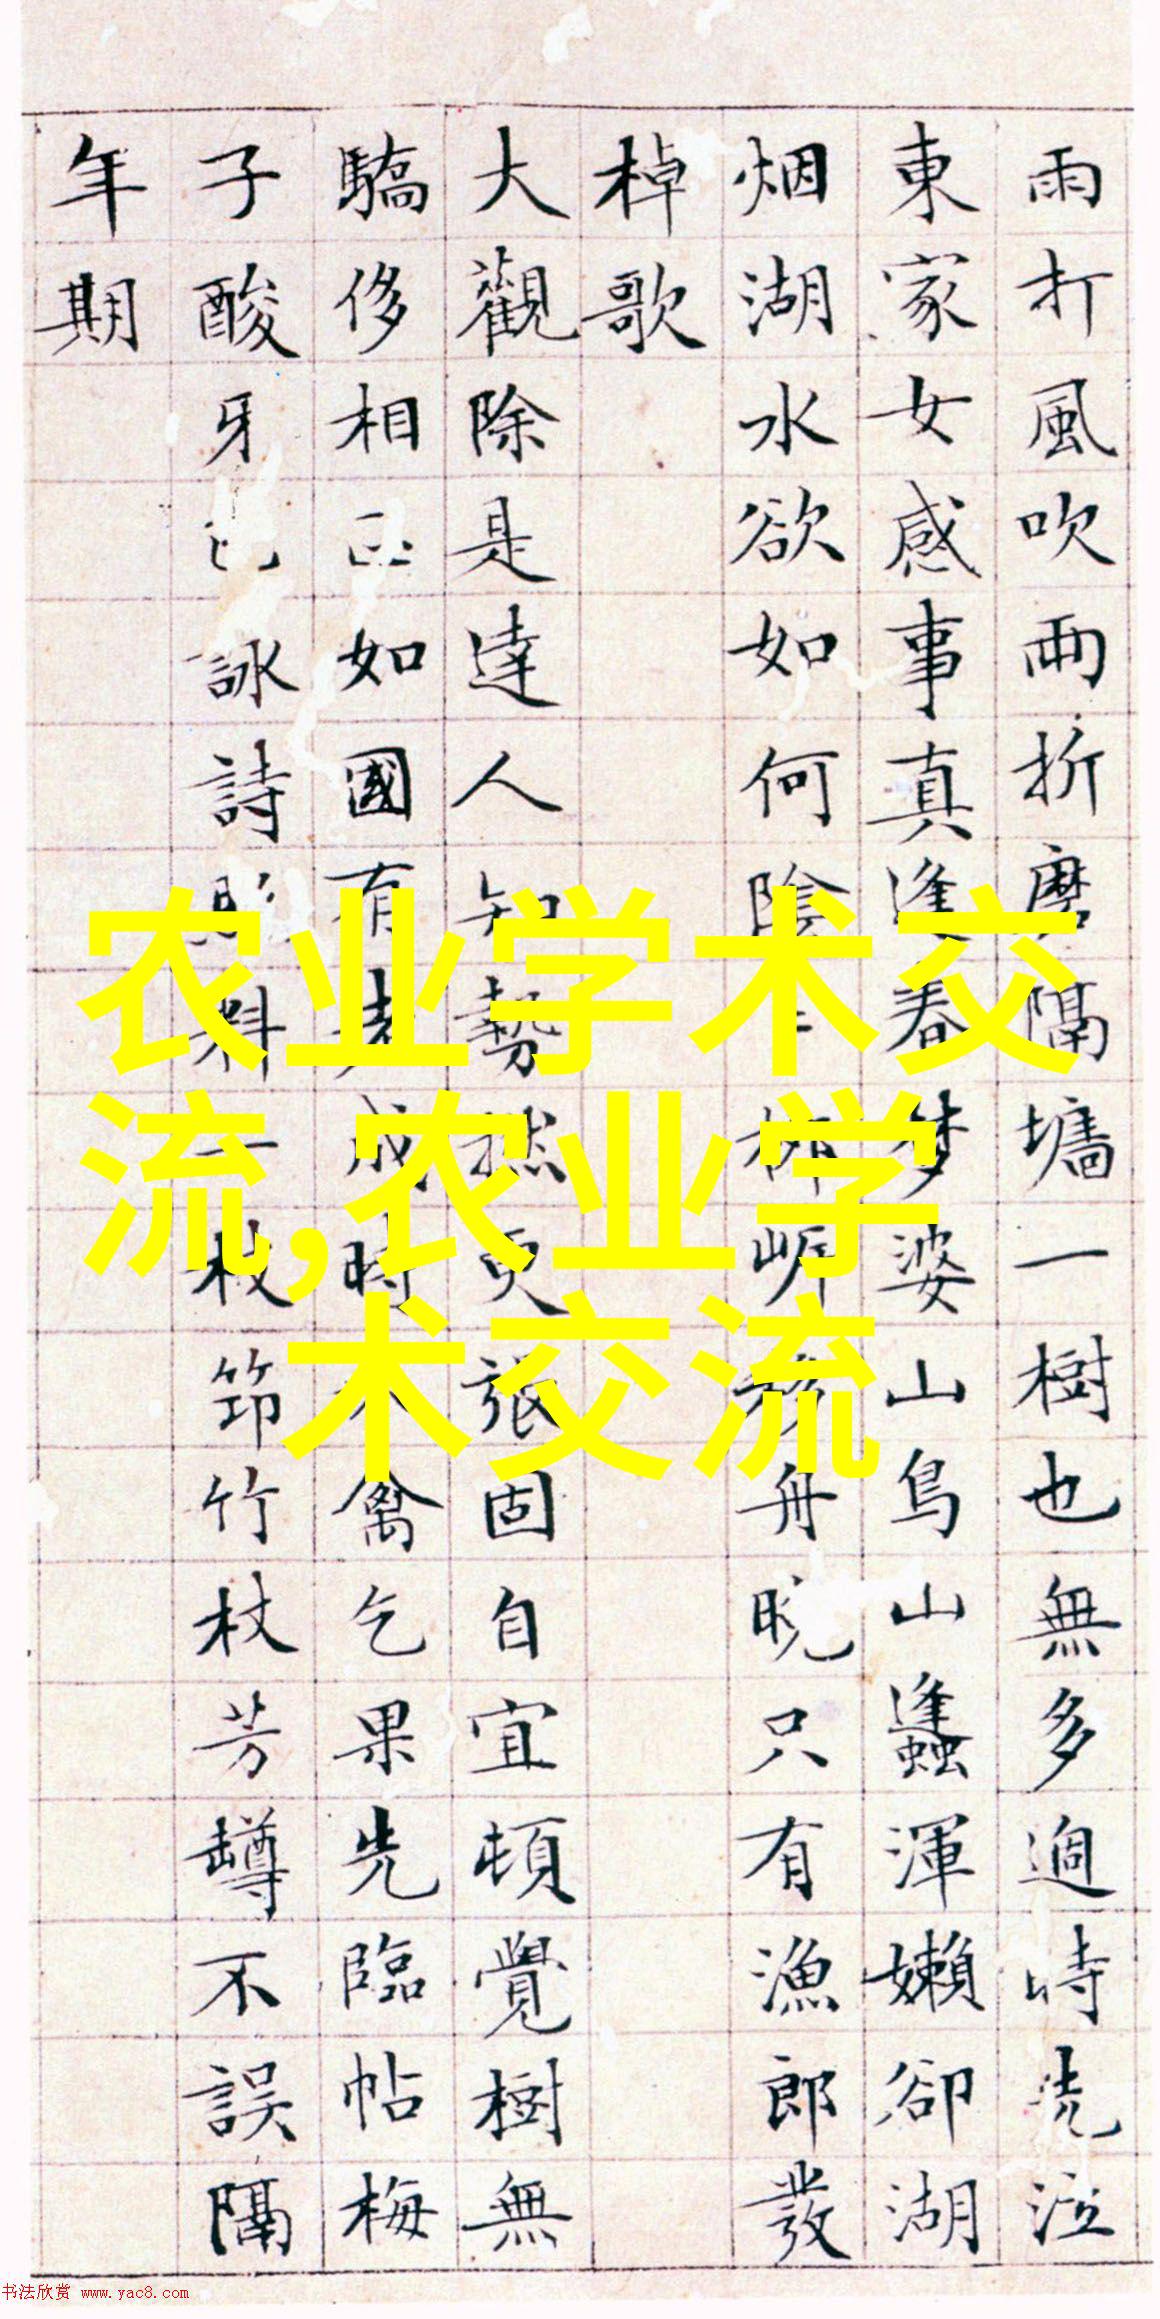 雨打風吹雨折磨隔墻一樹也無多過時
東家女感事真逢春夢婆山鳥山蠭渾嬾卻湖
烟湖水欲如何陰 舟晚只有漁郎發
棹歌
大觀除是達人知勢 更張固自宜頓覺樹無
驕侈相 如國有 成時 禽乞果先臨帖梅
子酸牙 詠詩 料一枚筇竹杖芳罇不誤隔
年期
农业学术交
流,农业学
术交流
书法欣赏 www.yac8.com